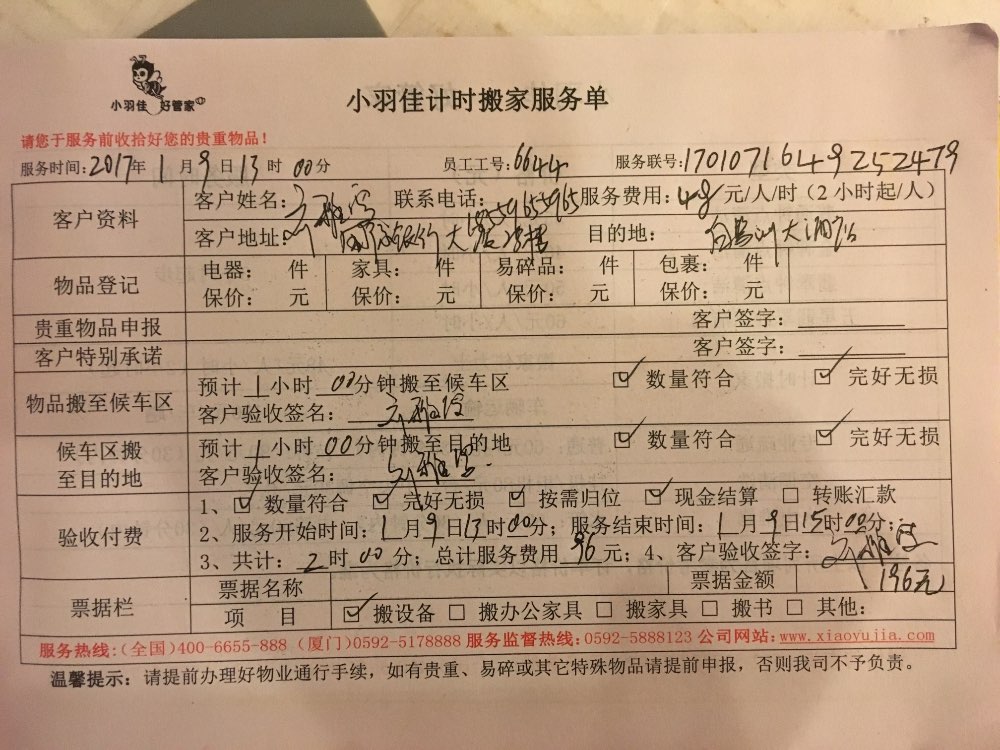 小羽佳 好管家
小羽佳计时搬家服务单
请您于服务前收拾好您的贵重物品！
服务时间：2017年 1 月 9 日 13 时 00分 员工工号：6644 服务联号：17010716492 52479
客户资料 客户姓名： 联系电话： 服务费用：48 元/人/时（2 小时起/人）
客户地址： 银行大 目的地： 大酒店
物品登记 电器： 件 家具： 件 易碎品： 件 包裹： 件
保价： 元 保价： 元 保价： 元 保价： 元
贵重物品申报 客户签字：
客户特别承诺 客户签字：
物品搬至候车区 预计 1 小时 00分钟搬至候车区 ☑ 数量符合 ☑ 完好无损
客户验收签名：
候车区搬至目的地 预计 1 小时 00分钟搬至目的地 ☑ 数量符合 ☑ 完好无损
客户验收签名：
验收付费 1、☑ 数量符合 ☑ 完好无损 ☑ 按需归位 ☑ 现金结算 □ 转账汇款
2、服务开始时间：1 月 9 日 13 时 00 分；服务结束时间：1 月 9 日 15 时 00 分；
3、共计：2 时 00 分；总计服务费用 96 元；4、客户验收签字：
票据栏 票据名称 票据金额 196元
项 目 ☑ 搬设备 □ 搬办公家具 □ 搬家具 □ 搬书 □ 其他：
服务热线：（全国）400-6655-888（厦门）0592-5178888 服务监督热线：0592-5888123 公司网站：www.xiaoyujia.com
温馨提示：请提前办理好物业通行手续，如有贵重、易碎或其它特殊物品请提前申报，否则我司不予负责。